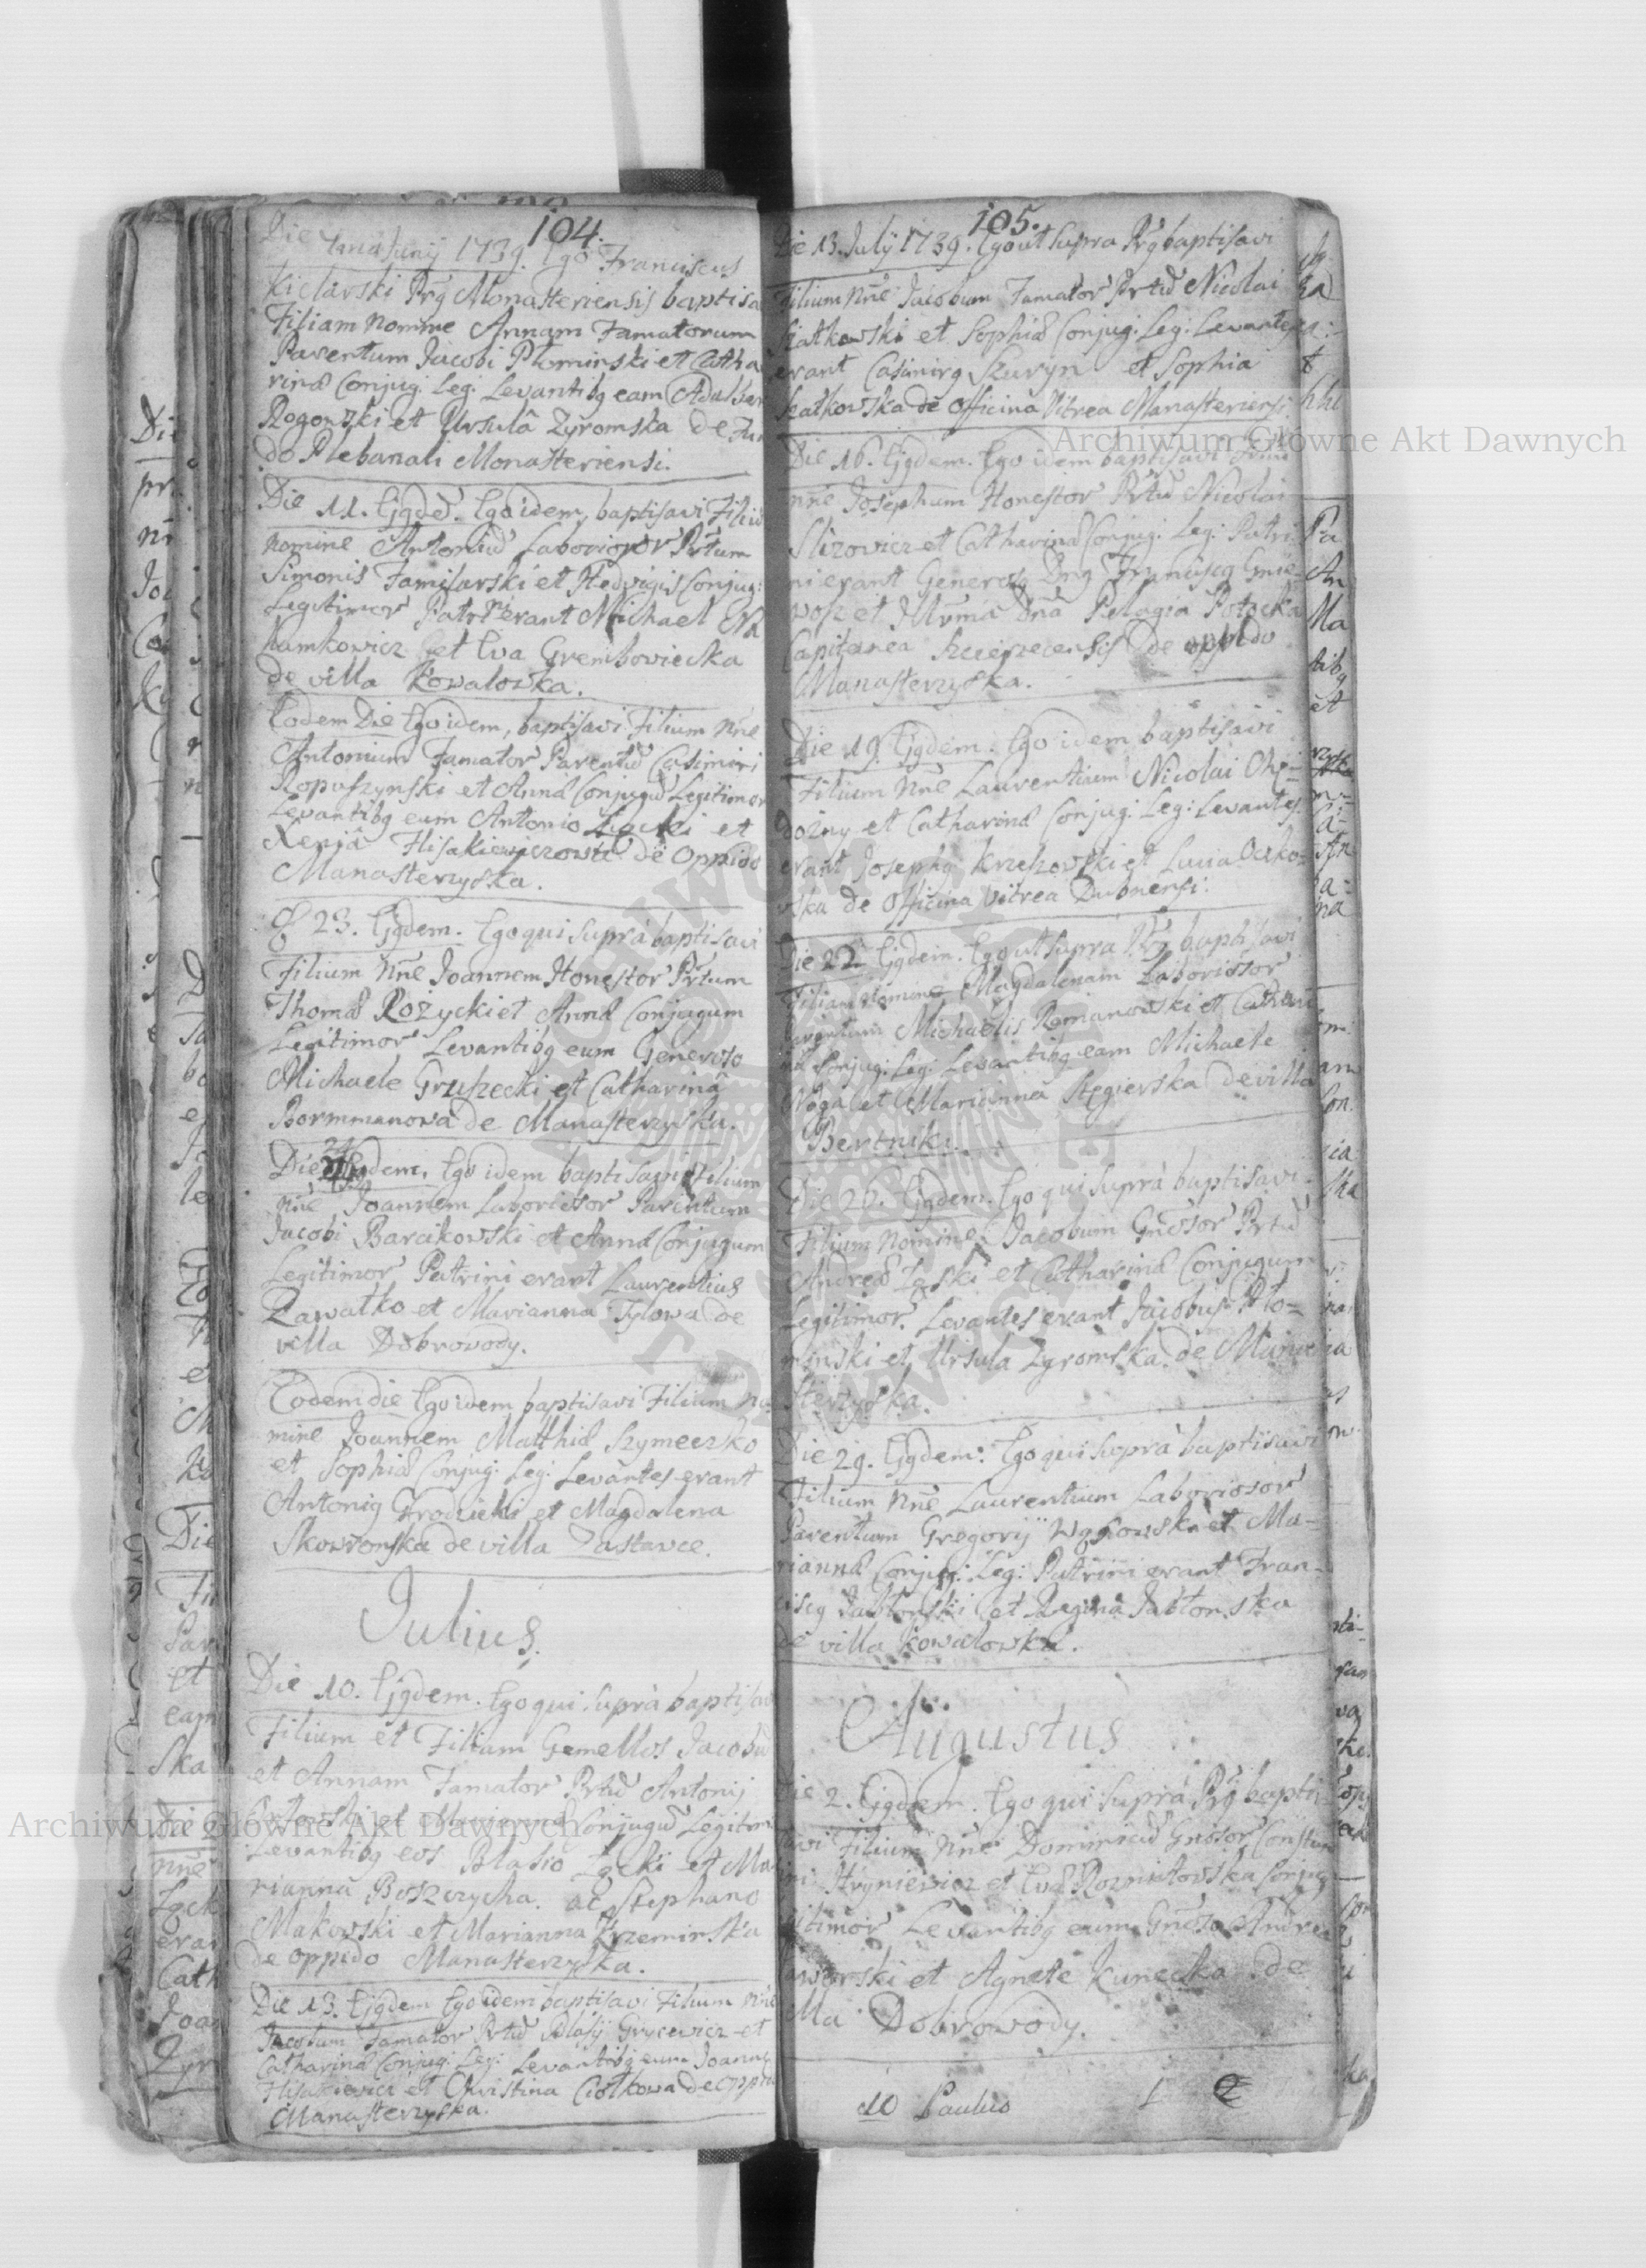 104.
Die 1ma Junij 1739. Ego Franciscus
Kielarski Prg Monasteriensis baptisa
Filiam nomine Annam Famatorum
Parentum Jacobi Płominski et Catha
rinæ Conjug: Leg: Levantibg eam Adalber
Rogowski et Ursulâ Zyromska de Fun
do Plebanali Monasteriensi.
Die 11. Ejgdẽ. Ego idem, baptisavi Filiũ
nomine Antoniũ Laborioror Prtum
Simonis Famisarski et Hedvigis Conjug:
Legitimor Patrni erant Michael
hamkowicz et Eva Grembowiecka
de villa Kowalowka.
Eodem Die Ego idem, baptisavi Filium nñe
Antonium Famator Parentũ Casimiri
Ropuszynski et Annæ Conjugũ Legitimor
Levantibg eum Antonio Łącki et
Xeniâ Hisakiewiczowa de Oppido
Manasterzyska.
23. Ejgdem. Ego qui suprà baptisavi
Filium nñe Joannem Honestor Prtum
Thomæ Rożycki et Annæ Conjugum
Legitimor Levantibg eum Generoso
Michaele Gruszecki et Catharinâ
Bormmanowa de Manasterzyska.
Die 24 Ejgdem. Ego idem baptisavi Filium
nñe Joannem Laboriosor Parentum
Jacobi Barcikowski et Annæ Conjugum
Legitimor Patrini erant Laurentius
Zawatko et Marianna Tylowa de
villa Dobrovody.
Eodem die Ego idem baptisavi Filium no
mine Joannem Matthiæ Szymeczko
et Sophiæ Conjug: Leg: Levantes erant
Antonig Grodzicki et Magdalena
Skowronska de villa Zastawce.
Julius.
Die 10. Ejgdem. Ego qui suprà baptisav
Filium et Filiam Gemellos Jacobũ
et Annam Famator Prtũ Antonij
et Mariannæ Conjugũ Legitim
Levantibg eos Blasio Łącki et Ma
riannâ Boszczycha. ac Stephano
Makowski et Marianna Krzeminska
de oppido Manasterzyska.
Die 13. Ejgdem Ego idem baptisavi Filium nñe
Jacobum Famator Prtũ Blasij Grycewicz et
Catharinæ Conjug: Leg: Levantibg eum Joanne
Hisakiewicz et Christina Ciołkowa de Oppid
Manasterzyska.
105.
Die 13. Julij 1739. Ego ut supra Prg baptisavi
Filium nñe Jacobum Famator Prtũ Nicolai
Szatkowski et Sophiæ Conjug: Leg: Levantes
erant Casimirg Szuryn et Sophia
Szatkowska de Officina Vitrea Manasteriensi.
Die 16. Ejgdem. Ego idem baptisavi Filium
nñe Josephum Honestor Prtũ Nicolai
Slizowicz et Catharinæ Conjug: Leg: Patri
ni erant Generosg Dng Franciscg Gnie-
wosz et Illrma Dna Pelagia Potocka
Capitanea de oppido
Manasterzyska.
Die 19. Ejgdem. Ego idem baptisavi
Filium nñe Laurentium Nicolai
et Catharinæ Conjug: Leg: Levantes
erant Josephg Krzeszowski et Lucia Oczko-
wska de Officina Vitrea Dubnensi.
Die 22. Ejgdem. Ego ut supra Prg baptisavi
Filiam nomine Magdalenam Laboriosor
Parentum Michaelis Romanowski et Cathari
næ Conjug: Leg: Levantibg eam Michaele
Noga et Mariannâ Stęgierska de villa
Bertniki.
Die 26. Ejgdem. Ego qui suprà baptisavi
Filium nomine Jacobum Gnosor Prtũ
Andreæ Łęski et Catharinæ Conjugum
Legitimor. Levantes erant Jacobus Pło-
minski et Ursula Zyromska de Mana
sterzyska.
Die 29. Ejgdem: Ego qui suprà baptisavi
Filium nñe Laurentium Laboriosor
Parentum Gregorij Wąsowski et Ma-
riannæ Conjug: Leg: Patrini erant Fran-
ciscg Jabłonski et Regina Jabłonska
de villa Kowalowka.
Augustus
Die 2. Ejgdem. Ego qui suprà Prg bapti-
savi Filium nñe Dominicũ Gnosor Constan
ni Hryniewicz et Evæ Rozniatowska Conjug
gitimor Levantibg eum Gnoso Andrea
Jaworski et Agnete Kunecka de
villa Dobrowody.
10 Paulus 1
Archiwum Główne Akt Dawnych
Archiwum Główne Akt Dawnych